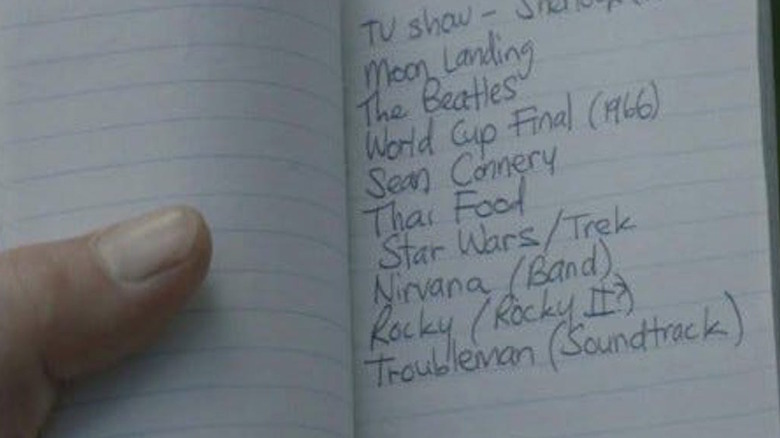 TV show - Sherlock
Moon Landing
The Beatles
World Cup Final (1966)
Sean Connery
Thai Food
Star Wars/Trek
Nirvana (Band)
Rocky (Rocky II?)
Troubleman (Soundtrack)